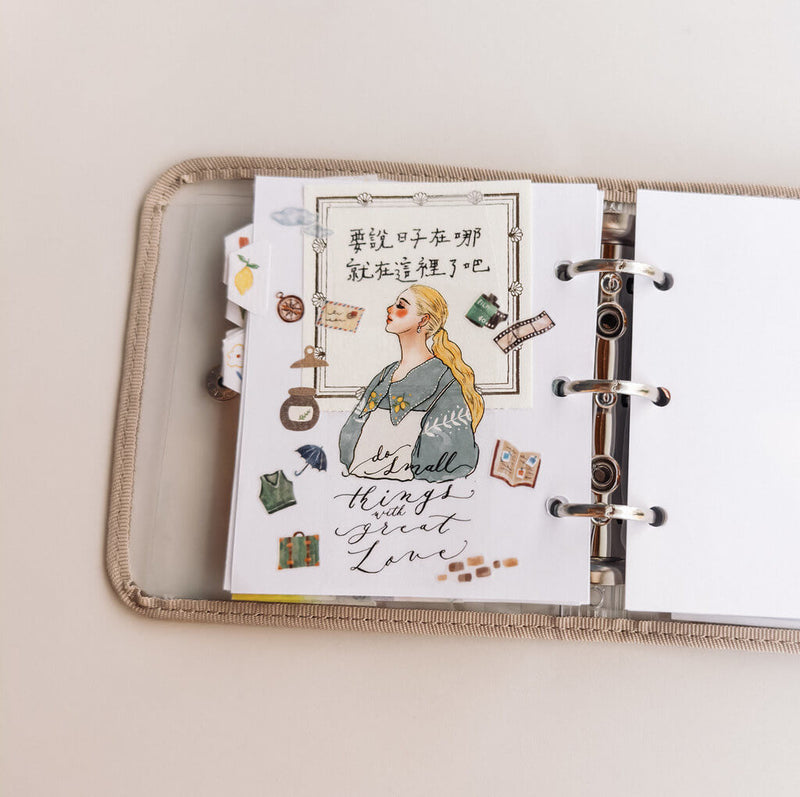 要說日子在哪
就在這裡了吧
do
small
things
with
great
Love